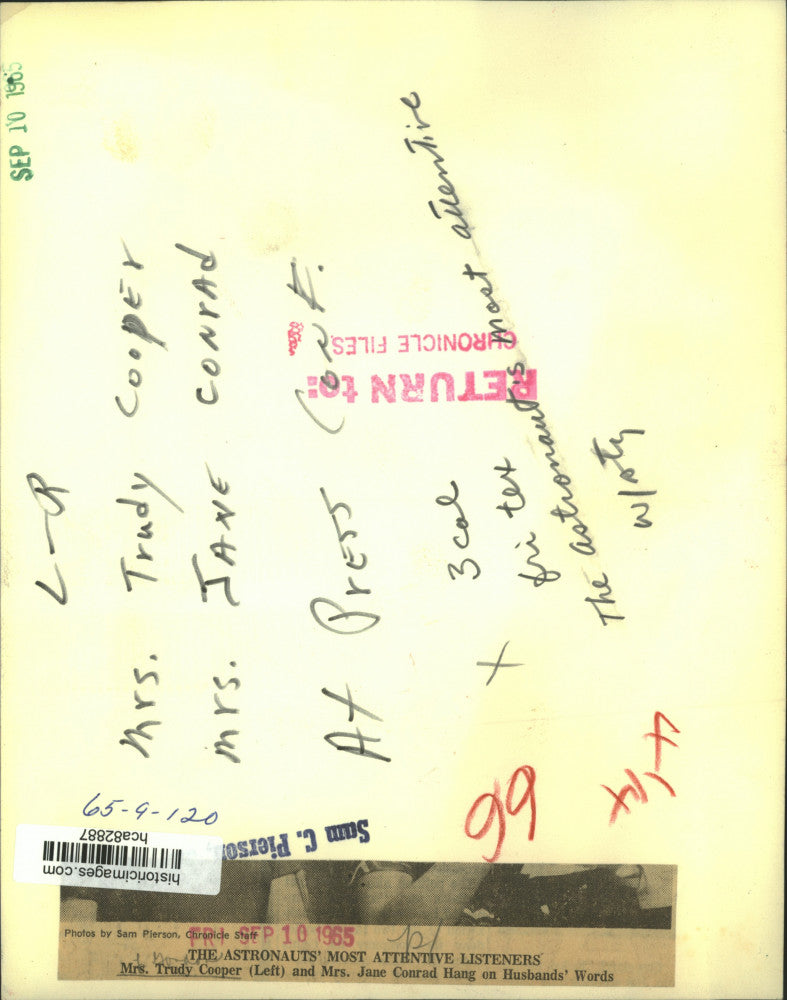 SEP 10 1965
L-R
Mrs. Trudy Cooper
Mrs. JANE CONrAd
At PrESS Conf.
RETURN to:
CHRONICLE FILES
3 col
fri tex
The astronauts most attentive
w/sty
X
99
65-9-120
historicimages.com
hca82887
Sam C. Pierson,
Photos by Sam Pierson, Chronicle Staff
FRI SEP 10 1965
p1
THE ASTRONAUTS' MOST ATTENTIVE LISTENERS
Mrs. Trudy Cooper (Left) and Mrs. Jane Conrad Hang on Husbands' Words